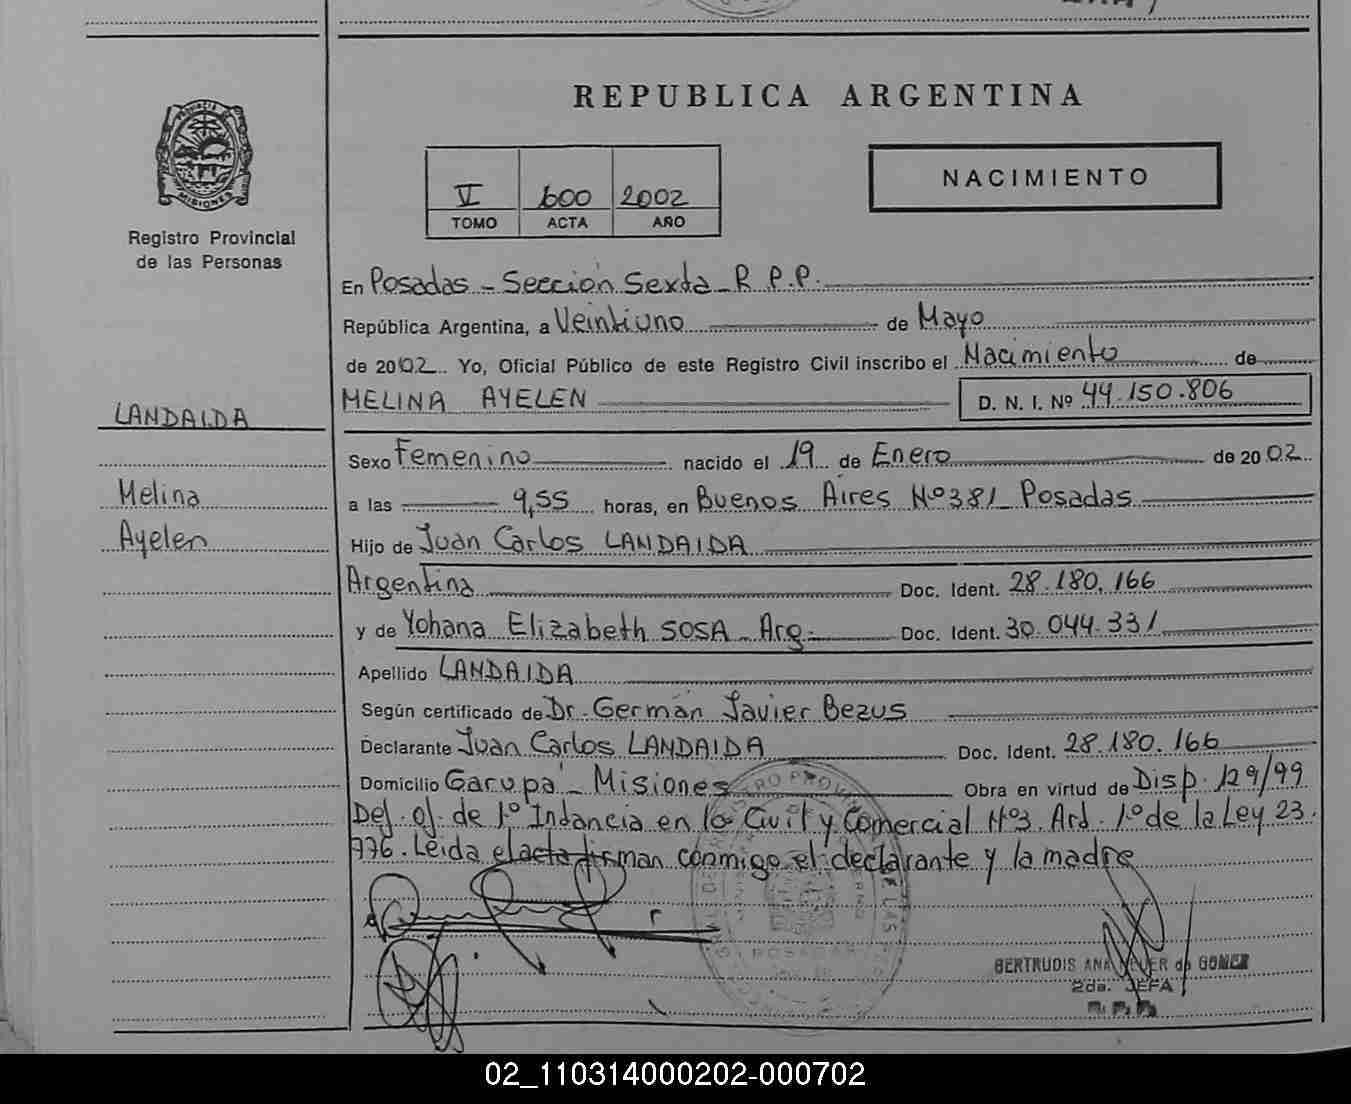 REPUBLICA ARGENTINA
PROVINCIA
MISIONES
Registro Provincial
de las Personas
V 600 2002
TOMO ACTA AÑO
NACIMIENTO
En Posadas - Sección Sexta - R.P.P.
República Argentina, a Veintiuno de Mayo
de 2002. Yo, Oficial Público de este Registro Civil inscribo el Nacimiento de
MELINA AYELEN D. N. I. Nº 44.150.806
LANDAIDA
Melina
Ayelen
Sexo Femenino nacido el 19 de Enero de 2002
a las 9,55 horas, en Buenos Aires Nº 381 Posadas
Hijo de Juan Carlos LANDAIDA
Argentina Doc. Ident. 28.180.166
y de Yohana Elizabeth SOSA - Arg. Doc. Ident. 30.044.331
Apellido LANDAIDA
Según certificado de Dr. Germán Javier Bezus
Declarante Juan Carlos LANDAIDA Doc. Ident. 28.180.166
Domicilio Garupá - Misiones Obra en virtud de Disp. 129/99
de 1º Instancia en lo Civil y Comercial Nº3. Art. 1º de la Ley 23.
776. Leida el acta firman conmigo el declarante y la madre
GERTRUDIS ANA de GOMEZ
2da. JEFA
02_110314000202-000702